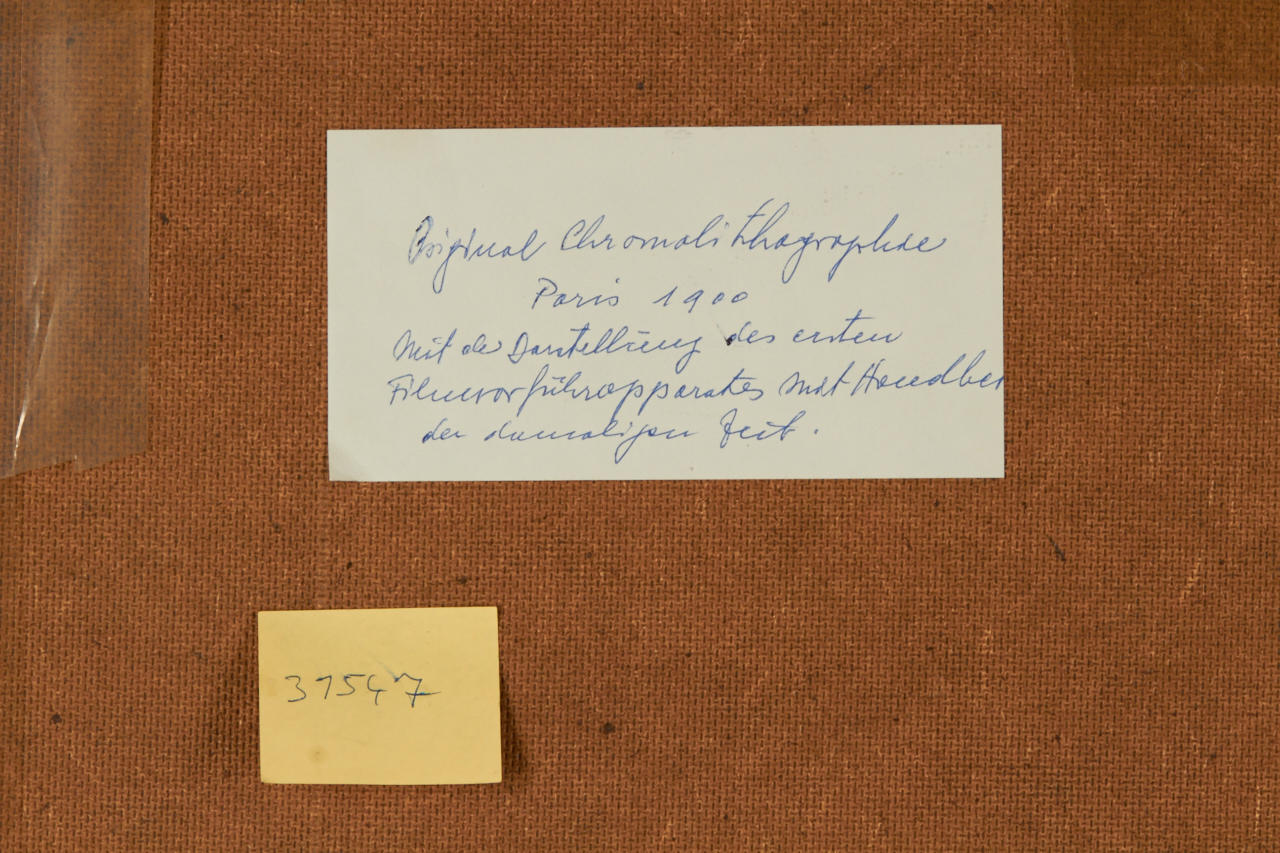 Original Chromolithographie
Paris 1900
Mit der Darstellung des ersten
Filmvorführapparates mit Handbe
der damaligen Zeit.
31547